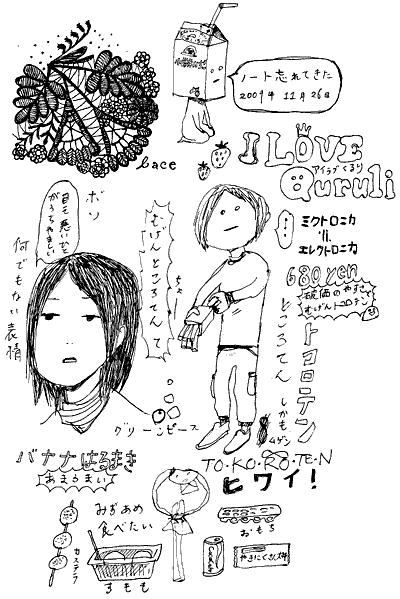 ノート忘れてきた
2009年 11月 26日
lace
I LOVE
アイラブくるり
Quruli
ボソ
何でもない表情
むげんところてんて
ミクトロニカ
エレクトロニカ
680 yen
破価のやすさで
むげんトコロテン
ところてん しかも ムゲン
トコロテン
グリーンピース
TO・KO・RO・TE・N
ヒワイ!
バナナはるまき
あまうまい
みずあめ
食べたい
カステラ
すもも
おもち
やきにくさん太郎